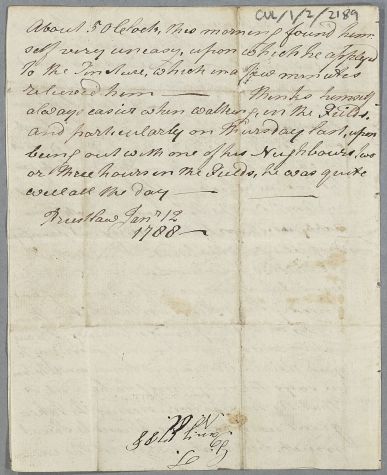 CUL/1/2/2189
About 5 O Clock, this morning found him
self very uneasy, upon which he applyd
to the Tincture, which in a few minutes
relieved him — thinks himself
always easier when walking in the Fields.
and particularly on Thursday last, upon
being out with one of his Neighbours, two
or three hours in the Fields, he was quite
well all the day —
Jany 12
1788